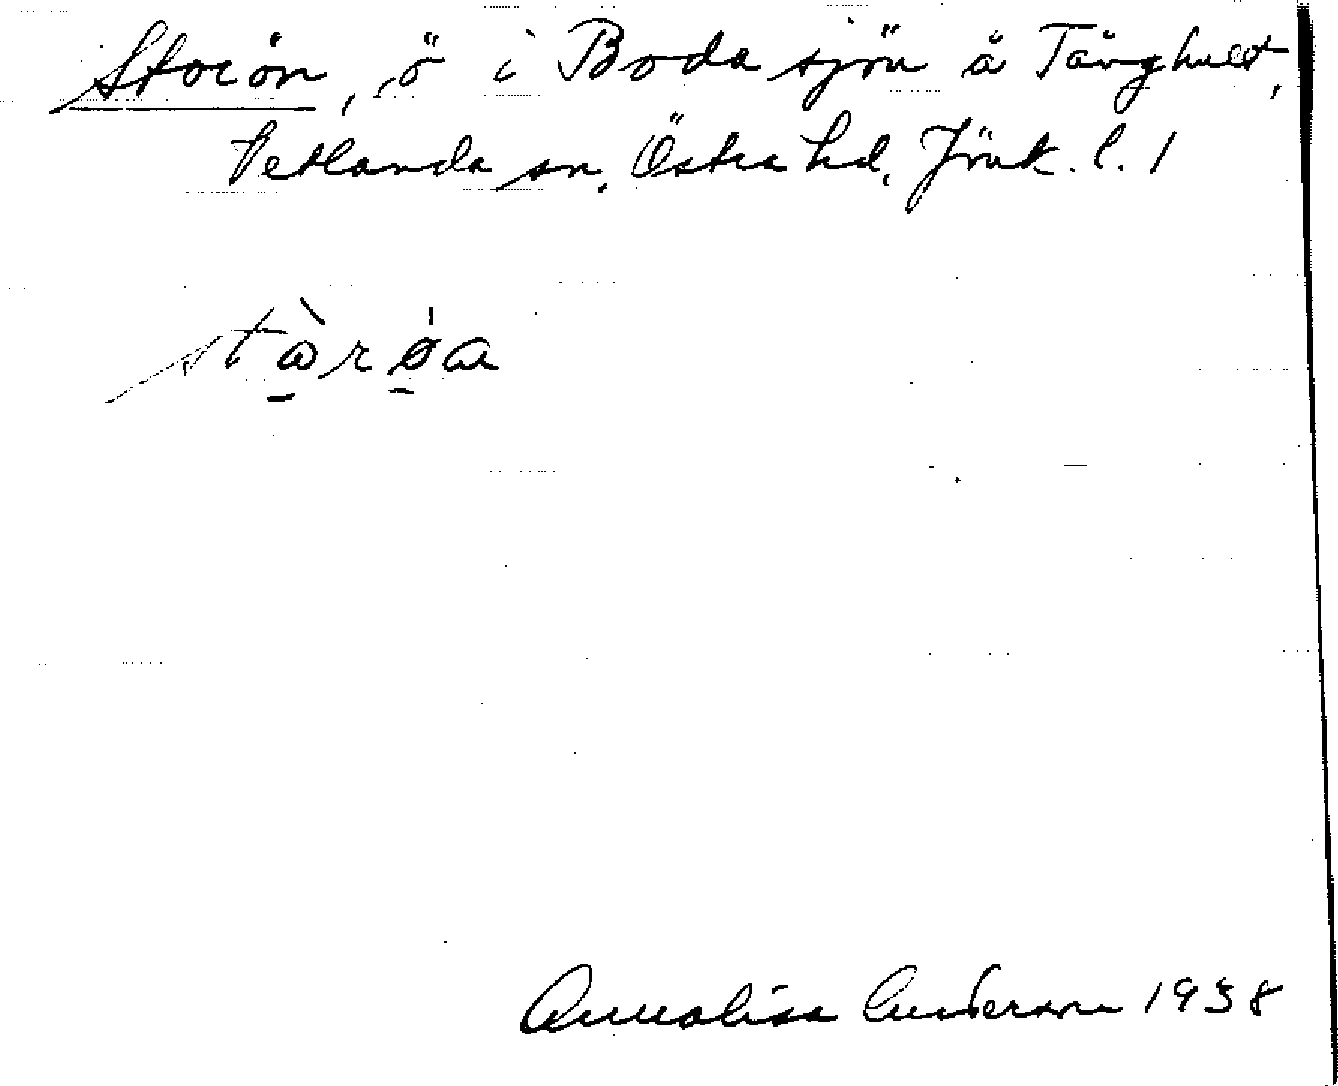 Storön, ö i Bodasjön å Tånghult,
Vetlanda sn, Östra hd, Jönk. l. 1
stòrøa
Annalisa Anderson 1938